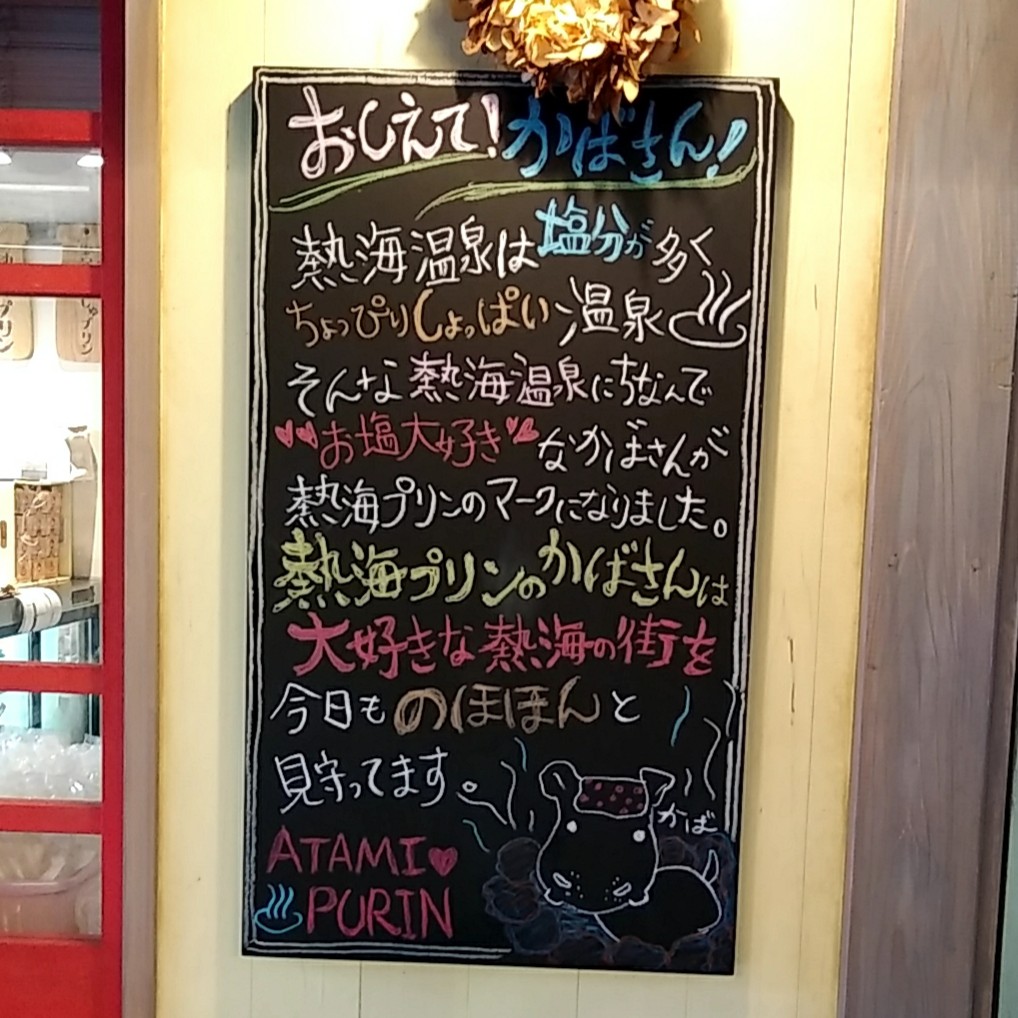 おしえて！かばさん！
熱海温泉は塩分が多く
ちょっぴりしょっぱい温泉♨
そんな熱海温泉にちなんで
♥♥お塩大好き♥♥なかばさんが
熱海プリンのマークになりました。
熱海プリンのかばさんは
大好きな熱海の街を
今日ものほほんと
見守ってます。
かば
ATAMI♥
♨PURIN
プリン
プリン